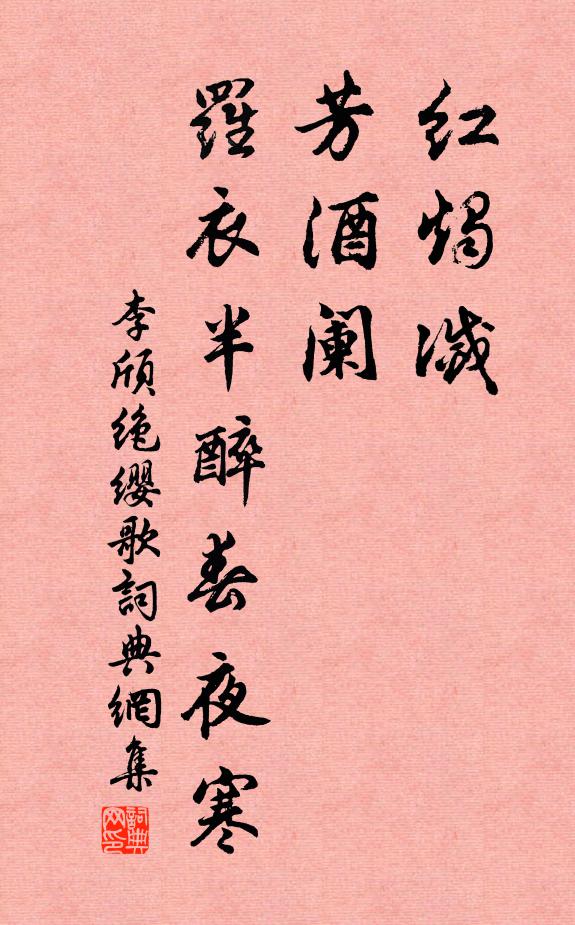 红烛灭
芳酒阑
羅衣半醉春夜寒
李頎绝缨歌詞典網集
詞典网印